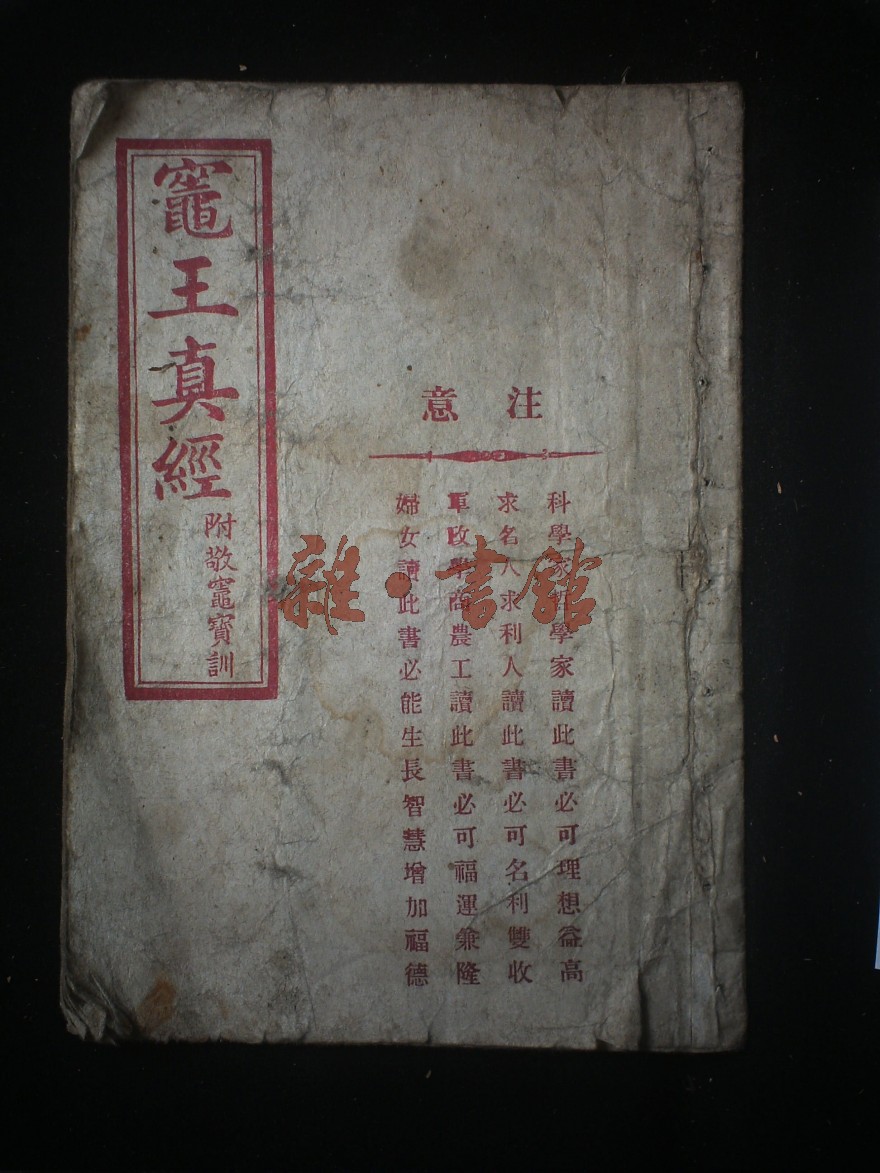 竈王真經
附敬竈寶訓
注意
科學家哲學家讀此書必可理想益高
求名人求利人讀此書必可名利雙收
軍政學商農工讀此書必可福運兼隆
婦女讀此書必能生長智慧增加福德
雜·書館